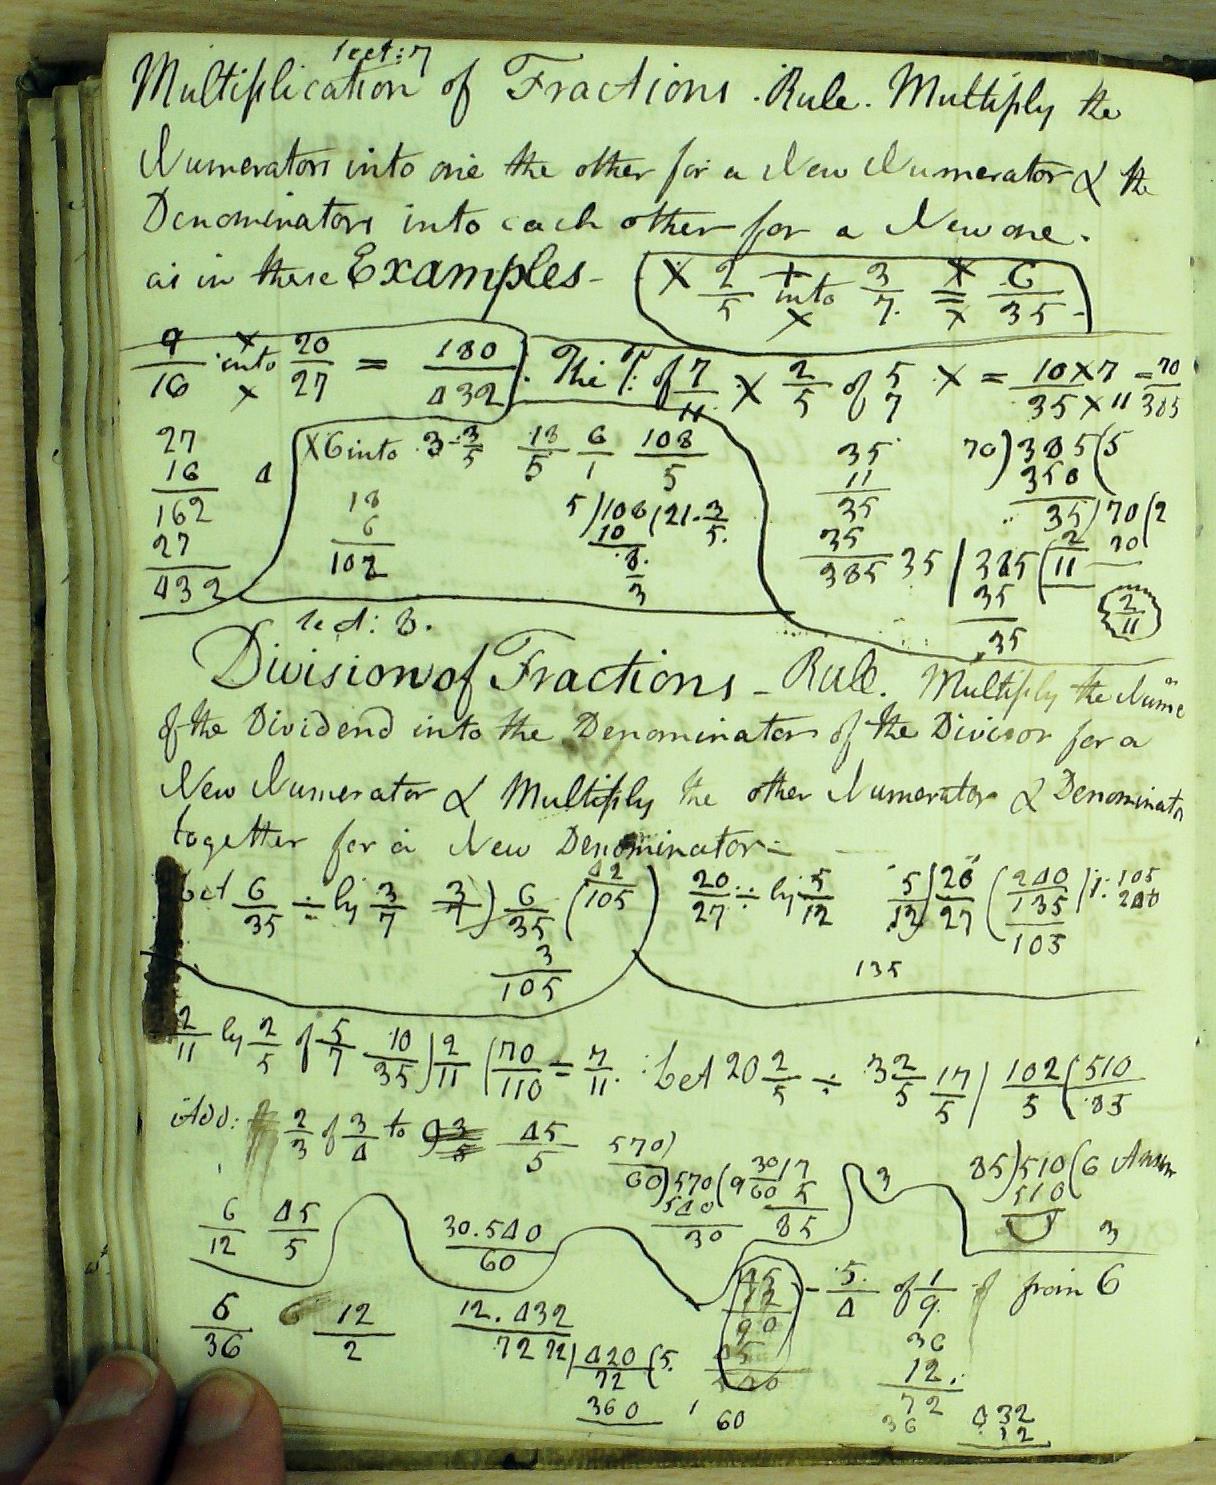 Sect: 7
Multiplication of Fractions. Rule. Multiply the
Numerators into one the other for a New Numerator & the
Denominators into each other for a New one.
as in these Examples - × 2/5 into 3/7 = 6/35
9/16 into 20/27 = 180/432. The of 7/11 × 2/5 of 5/7 × = 10×7/35×11 = 70/385
27
16
162
27
432
× 6 into 3-3/5 18/5 6/1 108/5
18
6
108
5)108(21-3/5
10
8
5
3
35
11
35
35
385
70)385(5
350
35)70(2
70
35)385(2/11
35
35
2/11
Sect: 8.
Division of Fractions - Rule. Multiply the Nume
of the Dividend into the Denominator of the Divisor for a
New Numerator & Multiply the other Numerator & Denominator
together for a New Denominator -
Let 6/35 ÷ by 3/7 3/7) 6/35 (42/105
3
105
20/27 ÷ by 5/12 5/12) 20/27 (240/135) 1: 105
240
105
135
2/11 by 2/5 of 5/7 10/35) 2/11 (70/110 = 7/11. Let 20 2/5 ÷ 3 2/5 17/5) 102/5 (510/85
Add: 2/3 of 3/4 to 9 45/5
570)
60)570(9 30/60
540
30
17
5
85
3
85)510(6 Answr
510
3
6/12 45/5
30.540
60
45
12
90
45
540
- 5/4 of 1/9 from 6
5/36 6 12/2
12.432
72
72)420(5.
72
360
60
36
12.
72
36
432
432
12